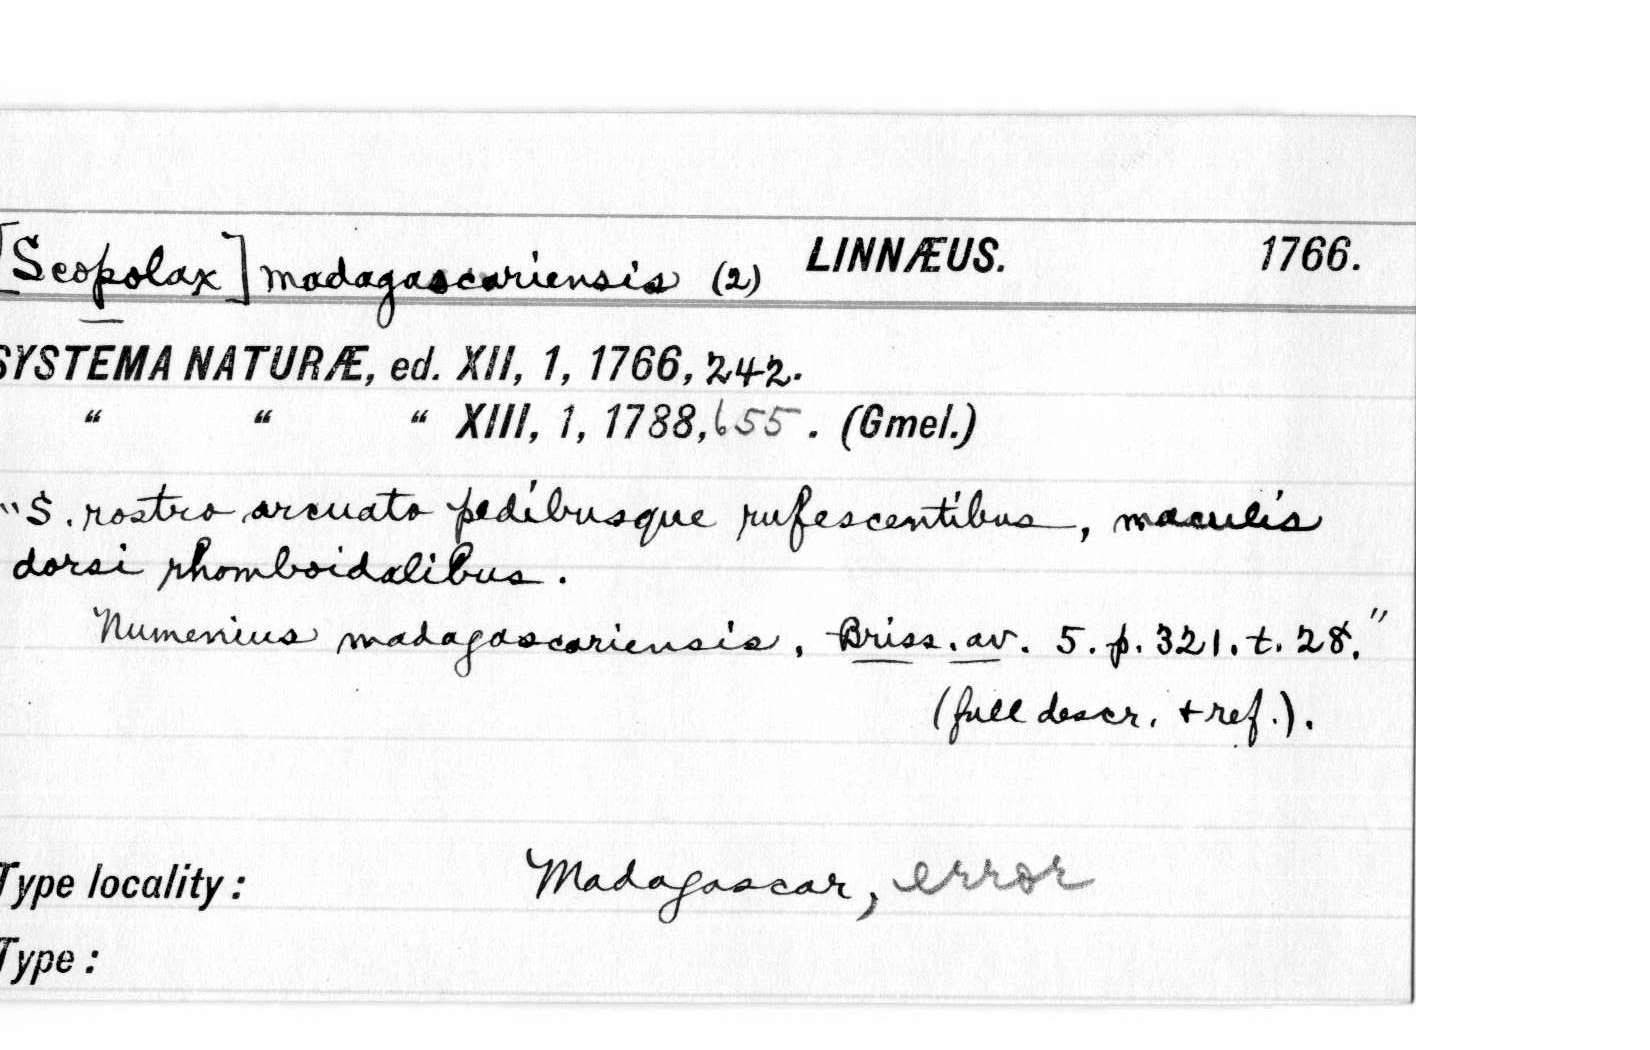 [Scopolax] madagascariensis (2) LINNÆUS. 1766.
SYSTEMA NATURÆ, ed. XII, 1, 1766, 242.
" " " XIII, 1, 1788, 655. (Gmel.)
"S. rostro arcuato pedibusque rufescentibus, maculis
dorsi rhomboidalibus.
Numenius madagascariensis, Briss. av. 5. p. 321. t. 28."
(full descr. + ref.).
Type locality: Madagascar, error
Type: